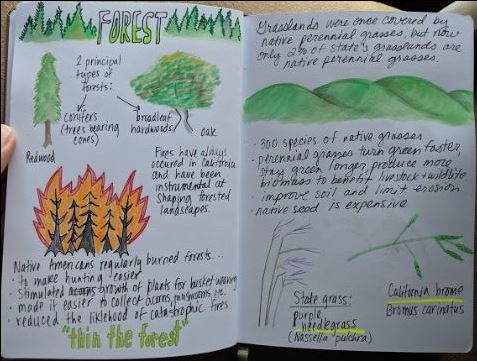 FOREST
2 principal
types of
forests:
conifers
(trees bearing
cones)
broadleaf
hardwoods
oak
Redwood
Fires have always
occured in California
and have been
instrumental at
shaping forested
landscapes.
Native Americans regularly burned forests...
• to make hunting easier
• stimulated growth of plants for basket weaving
• made it easier to collect acorns, mushrooms, etc.
• reduced the likehood of catastrophic fires
"thin the forest"
Grasslands were once covered by
native perennial grasses, but now
only 2% of state's grasslands are
native perennial grasses.
• 300 species of native grasses
• perennial grasses turn green faster,
stay green longer, produce more
biomass to benefit livestock + wildlife
• improve soil and limit erosion
• native seed is expensive
State grass:
purple
needlegrass
(Nassella pulchra)
California brome
Bromus carinatus